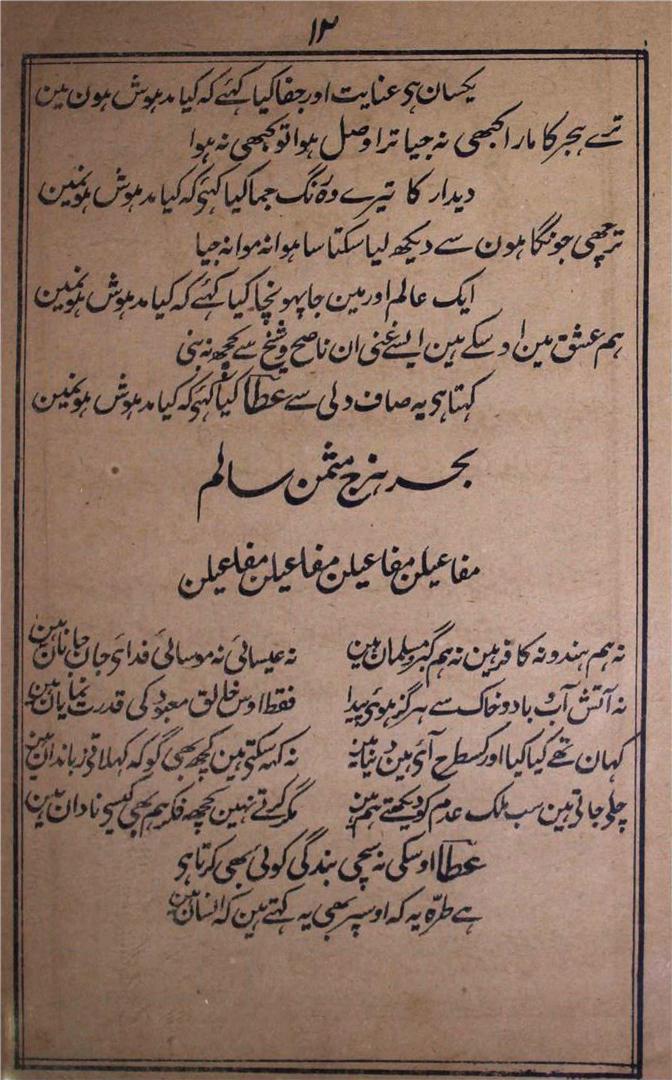 ۱۲
یکسان ہی عنایت اور جفا کیا کہئے کہ کیا مدہوش ہون مین
ترے ہجر کا مارا کبھی نہ جیا ترا وصل ہوا تو کبھی نہ ہوا
دیدار کا تیرے وہ رنگ جما کیا کہئے کہ کیا مدہوش ہونمین
ترچھی جو نگاہون سے دیکھ لیا سکتا سا ہوا نہ موا نہ جیا
ایک عالم اور مین جا پہونچا کیا کہئے کہ کیا مدہوش ہونمین
ہم عشق مین اوسکے ہین ایسے غنی ان ناصح و شیخ سے کچھ نہ بنی
کہتا ہی یہ صاف دلی سے عطا کیا کہئے کہ کیا مدہوش ہونمین
بحر ہزج مثمن سالم
مفاعیلن مفاعیلن مفاعیلن مفاعیلن
نہ ہم ہندو نہ کافر ہین نہ ہم گبر و مسلمان ہین نہ عیسائی نہ موسائی فدائے جان جانان ہین
نہ آتش آب و باد و خاک سے ہرگز ہوئی پیدا فقط اوس خالق معبود کی قدرت نمایان ہین
کہان تھے کیا کیا اور کسطرح آئی ہین دنیا مین نہ کہہ سکتی ہین کچھ بھی گو کہ کہلاتی زباندان ہین
چلی جاتی ہین سب ملک عدم کو دیکھتے ہم ہین مگر کرتے نہین کچھ فکر ہم بھی کیسی نادان ہین
عطا اوسکی نہ سچی بندگی کوئی بھی کرتا ہی
ہے طرہ یہ کہ اوسپر بھی یہ کہتے ہین کہ انسان ہین